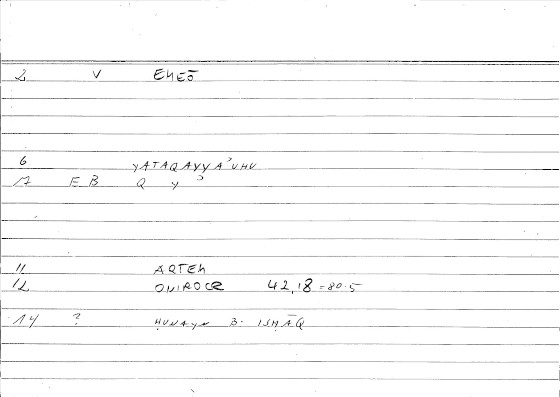 2 V EMEŌ
6 YATAQAYYAʾUHU
17 E B Q Y ʾ
11 ARTEM
12 ONIROCR 42,18 = 80.5
14 ? ḤUNAYN B. ISḤĀQ